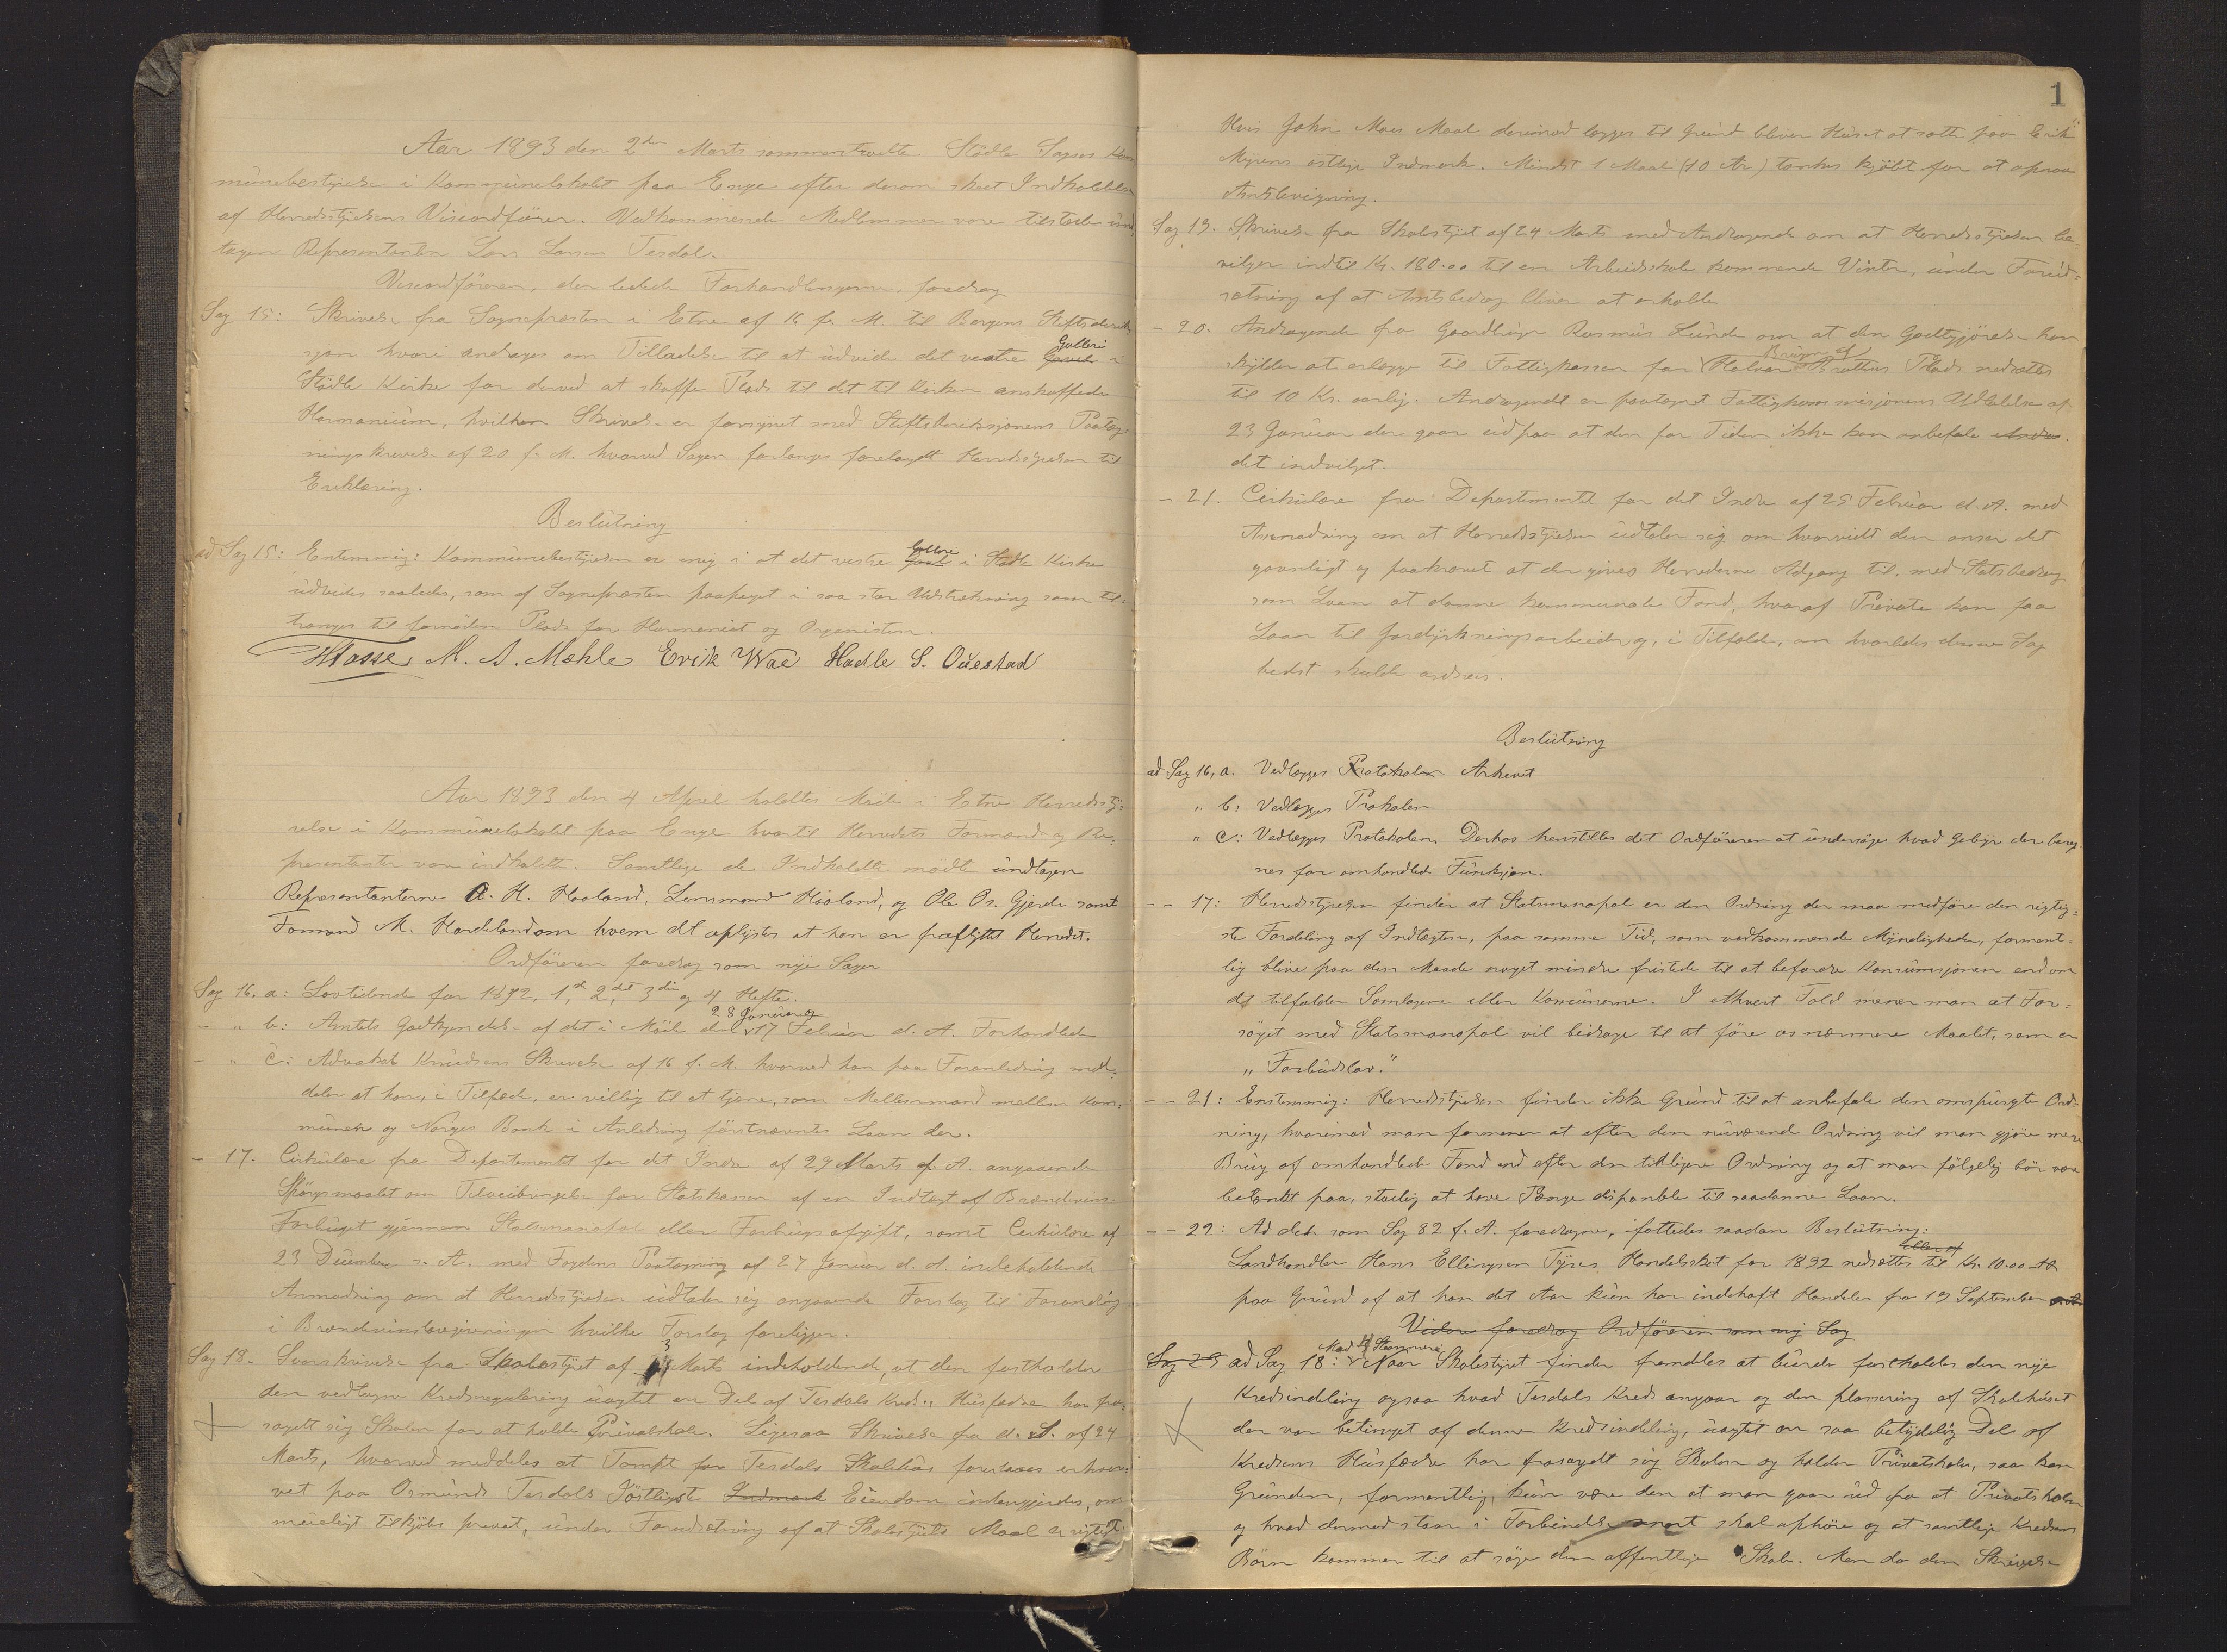 Aar 1893 den 2den Marts sammentraadte Stødle Sogns Kom
münebestyrelse i Kommünelokalet paa Enge efter derom skeet Indkaldelse
af Herredsstyrelsens Viceordfører. Vedkommende Medlemmer vare tilstede ünd
tagen Repræsentanten Lars Larsen Tesdal.
Viceordføreren, der ledede Forhandlingerne, foredrog
Sag 15: Skrivelse fra Sognepræsten i Etne af 16 f. M. til Bergens Stiftsdirek
sjon hvori andrages om Tilladelse til at üdvide det vestre Galleri i
Stødle Kirke for derved at skaffe Plads til det til Kirken anskaffede
Harmoniüm, hvilken Skrivelse er forsynet med Stiftsdireksjonens Paateg-
ningsskrivelse af 20 f. M. hvorved Sagen forlanges forelagdt Herredsstyrelsen til
Erklæring.
Beslütning
ad Sag 15: Enstemmig: Kommünebestyrelsen er enig i at det vestre Galleri i Stødle Kirke
üdvides saaledes, som af Sognepræsten paapeget i saa stor Udstrækning som til-
trænges til fornøden Plads for Harmoniet og Organisten.
HTasse M. A. Mæhle Erik Wae Hadle S. Ouestad
Aar 1893 den 4 April holdtes Møde i Etne Herredssty-
relse i Kommünelokalet paa Enge hvortil Herredets Formænd og Re-
præsentanter vare indkaldte. Samtlige de Indkaldte mødte ündtagen
Repræsentanterne A. H. Haaland, Lensmand Håoland, og Ole Os. Gjerde samt
Formand M. Hardeland om hvem det oplystes at han er fraflyttet Herredet.
Ordføreren foredrog som nye Sager
Sag 16. a: Lovtidende for 1892, 1ste 2det 3die og 4 Hefte.
- " b: Amtets Godkjendelse af det i Møde den 28 Januar og 17 Febrüar d. A. Forhandlede
- " c: Advokat Knüdsens Skrivelse af 16 f. M. hvorved han paa Foranledning med-
deler at han, i Tilfælde, er villig til at tjene, som Mellemmand mellem Kom-
münen og Norges Bank i Anledning førstnævntes Laan der.
- 17. Cirkülære fra Departementet for det Indre af 29 Marts d. A. angaaende
Spørgsmaalet om Tilveiebringelse for Statskassen af en Indtægt af Brændevins-
Forbrüget gjennem Statsmonopol eller Forbrugsafgift, samt Cirkülære af
23 Decémber s. A. med Fogdens Paategning af 27 Janüar d. A. indeholdende
Anmodning om at Herredsstyrelsen üdtaler sig angaaende Forslag til Forandring
i Brændevinslovgivningen hvilke Forslag foreligger.
Sag 18. Svarskrivelse fra Skolestyret af Marts indeholdende, at den fastholder
den vedtagne Kredsregulering üagtet en Del af Tesdals Kreds's Hüsfædre har fra-
sagdt sig Skolen for at holde Privatskole. Ligesaa Skrivelse fra d. S. af 24
Marts, hvorved meddeles at Tompt for Tesdals Skolehüs foreslaaes erhver-
vet paa Osmünd Tesdals østligste Indmark Eiendom indengjerdes, om
müeligt tilkjøbes privat, ünder Forudsætning af at Skolestyrets Maal er rigtigt
1
Hvis John Moes Maal derimod lægges til Gründ bliver Hüset at sætte paa Erik
Myrens østlige Indmark. Mindst 1 Maal (10 Ar) tænkes kjøbt for at opnaa
Amtsbevigning.
Sag 19. Skrivelse fra Skolestyret af 24 Marts med Andragende om at Herredsstyrelsen be-
vilger indtil Kr. 180.00 til en Arbeidsskole kommende Vinter, ünder Forüd-
sætning af at Amtsbidrag bliver at erholde
- 20. Andragende fra Gaardbrüger Rasmüs Lünde om at den Godtgjørelse han
skylder at erlægge til Fattigkassen for Brügen af Halvor Brattens Plads nedsættes
til 10 Kr. aarlig. Andragendet er paategnet Fattigkommisjonens Udtalelse af
23 Janüar der gaar üd paa at den for Tiden ikke kan anbefale Andra-
det indvilget.
- 21. Cirkülære fra Departementet for det Indre af 25 Febrüar d. A. med
Anmodning om at Herredsstyrelsen üdtaler sig om hvorvidt den anser det
gavnligt og paakrævet at der gives Herrederne Adgang til, med Statsbidrag
som Laan at danne kommunale Fond, hvoraf Private kan faa
Laan til Jordyrkningsarbeide og, i Tilfælde, om hvorledes denne Sag
bedst skulde ordnes.
Beslütning
ad Sag 16, a. Vedlægges Protokolen Arkivet
" b: Vedlægges Prokolen
" c: Vedlægges Protokolen. Derhos henstilles det Ordføreren at ündersøge hvad Gebyr der bereg-
nes for omhandlede Fünksjon.
- - 17: Herredsstyrelsen finder at Statsmonopol er den Ordning der maa medføre den rigtig-
ste Fordeling af Indtægten, paa samme Tid, som vedkommende Myndigheder, forment-
lig blive paa den Maade noget mindre fristede til at befordre Konsümsjonen end om
det tilfalder Samlagene eller Komünerne. I ethvert Fald mener man at For-
søget med Statsmonopol vil bidrage til at føre os nærmere Maalet, som er
„Forbüdslov."
- - 21: Enstemmig: Herredsstyrelsen finder ikke Gründ til at anbefale den omspürgte Ord-
ning, hvorimod man formener at efter den nüværende Ordning vil man gjøre mere
Brüg af omhandlede Fond end efter den tidligere Ordning og at man følgelig bør være
betænkt paa, stadig at have Penge disponible til saadanne Laan.
- - 22: Ad den som Sag 82 f. A. foredragne, fattedes saadan Beslütning:
Landhandler Hans Ellingsen Tyses Handelsskat for 1892 nedsættes til Kr. 10.00
paa Gründ af at han det Aar kün har indehaft Handelen fra 19 September
Videre foredrog Ordføreren som ny Sag
Sag 23 ad Sag 18: Med 4 Stemmer Naar Skolestyret finder fremdeles at bürde fastholdes den nye
Kredsindeling ogsaa hvad Tesdals Kreds angaar og den plasering af Skolehüset
der var betinget af denne Kredsindeling, üagtet en saa betydelig Del af
Kredsens Hüsfædre har frasagdt sig Skolen og holder Privatskole, saa kan
Gründen, formentlig, kün være den at man gaar üd fra at Privatskolen
og hvad dermed staar i Forbindelse snart skal ophøre og at samtlige Kredsens
Børn kommer til at søge den offentlige Skole. Men da den Skrivelse